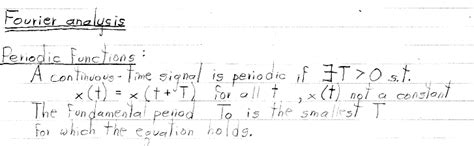 Fourier analysis
Periodic Functions:
A continuous-time signal is periodic if ∃T > 0 s.t.
x(t) = x(t+T) for all t, x(t) not a constant
The fundamental period To is the smallest T
for which the equation holds.